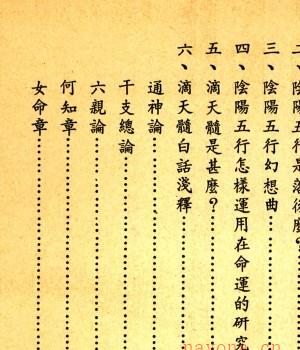 二、陰陽五行是落伍麼?
三、陰陽五行幻想曲
四、陰陽五行怎樣運用在命運的研究
五、滴天髓是甚麼?
六、滴天髓白話淺釋
通神論
干支總論
六親論
何知章
女命章
nayona.cn